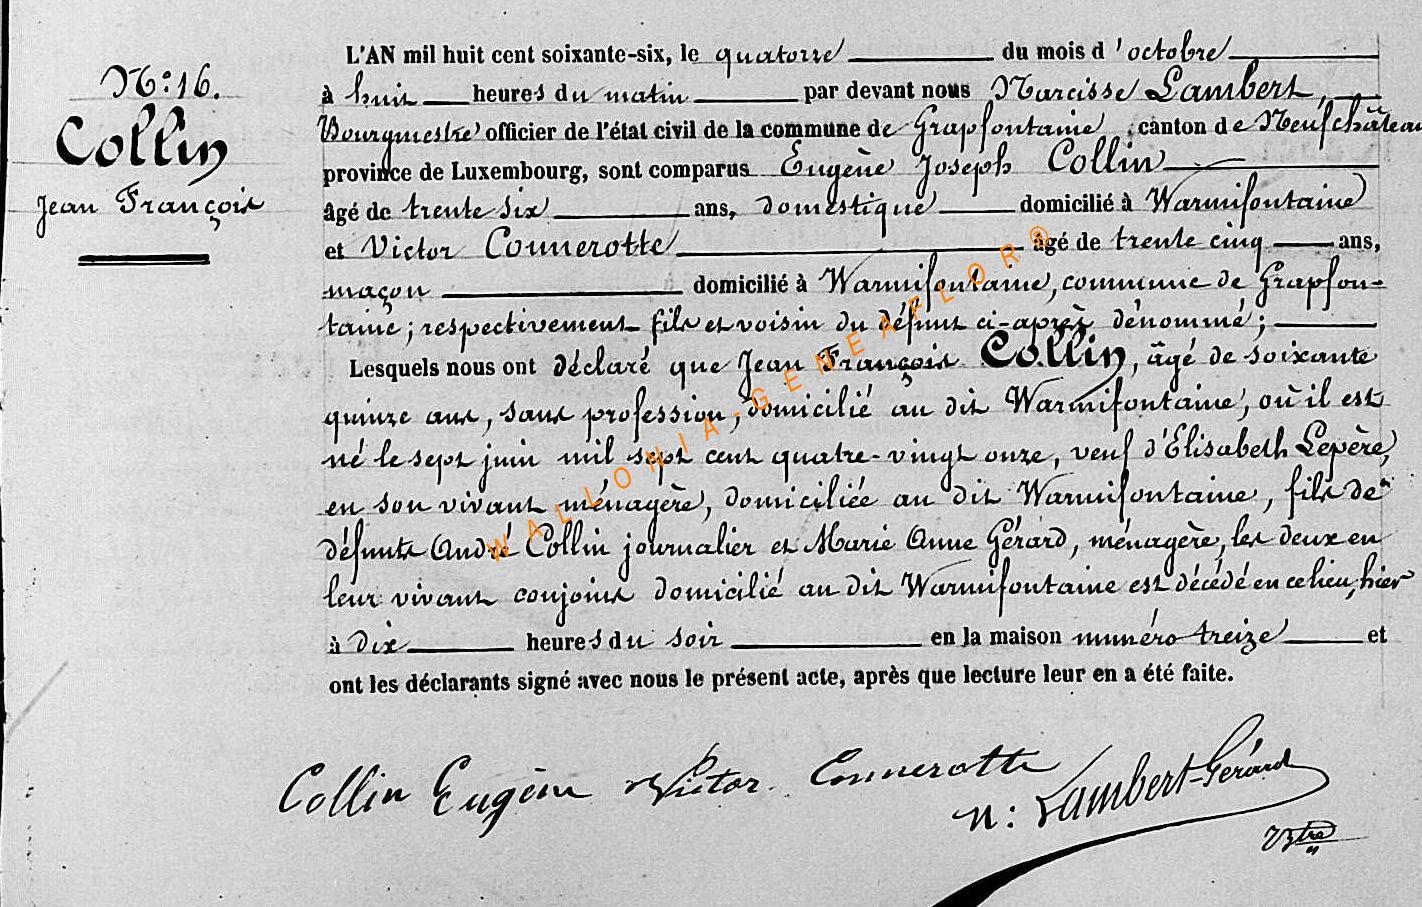 N.o 16.
Collin
Jean François
L'AN mil huit cent soixante-six, le quatorze du mois d'octobre
à huit heures du matin par devant nous Narcisse Lambert,
Bourgmestre officier de l'état civil de la commune de Grapfontaine, canton de Neufchâteau
province de Luxembourg, sont comparus Eugène Joseph Collin
âgé de trente six ans, domestique domicilié à Warmifontaine
et Victor Connerotte âgé de trente cinq ans,
maçon domicilié à Warmifontaine, commune de Grapfon-
taine; respectivement fils et voisin du défunt ci-après dénommé;
Lesquels nous ont déclaré que Jean François Collin, âgé de soixante
quinze ans, sans profession, domicilié au dit Warmifontaine, où il est
né le sept juin mil sept cent quatre-vingt onze, veuf d'Elisabeth Lepère,
en son vivant ménagère, domiciliée au dit Warmifontaine, fils de
défunts André Collin journalier et Marie Anne Gérard, ménagère, les deux en
leur vivant conjoins domicilié au dit Warmifontaine est décédé en ce lieu, hier
à dix heures du soir en la maison numéro treize et
ont les déclarants signé avec nous le présent acte, après que lecture leur en a été faite.
WALLONIA-GENEAFLOR®
Collin Eugène Victor Connerotte
N: Lambert-Gérard